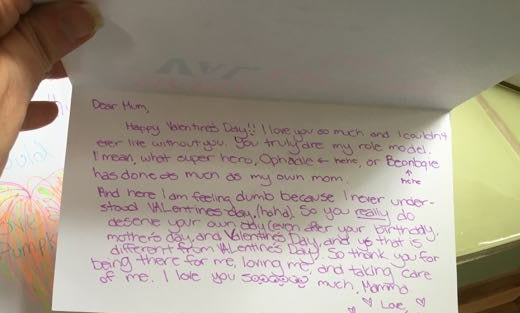 Dear Mum,
Happy Valentine's Day!! I love you so much and I couldn't
ever live without you. You truly are my role model.
I mean, what super hero, ← hehe, or
hehe
has done as much as my own mom.
And here I am feeling dumb because I never under-
stood VALentines day. (haha). So you really do
deserve your own day (even after your birthday,
mother's day, and Valentine's Day, and yes that is
different from VALentine's Day). So thank you for
being there for me, loving me, and taking care
of me. I love you much,
Love,